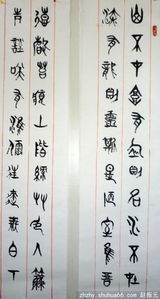 山不在高有仙則名水不在
深有龍則靈斯是陋室惟吾
德馨苔痕上階綠草色入簾
青談笑有鴻儒往來無白丁
zhzhy.shuhua66.com